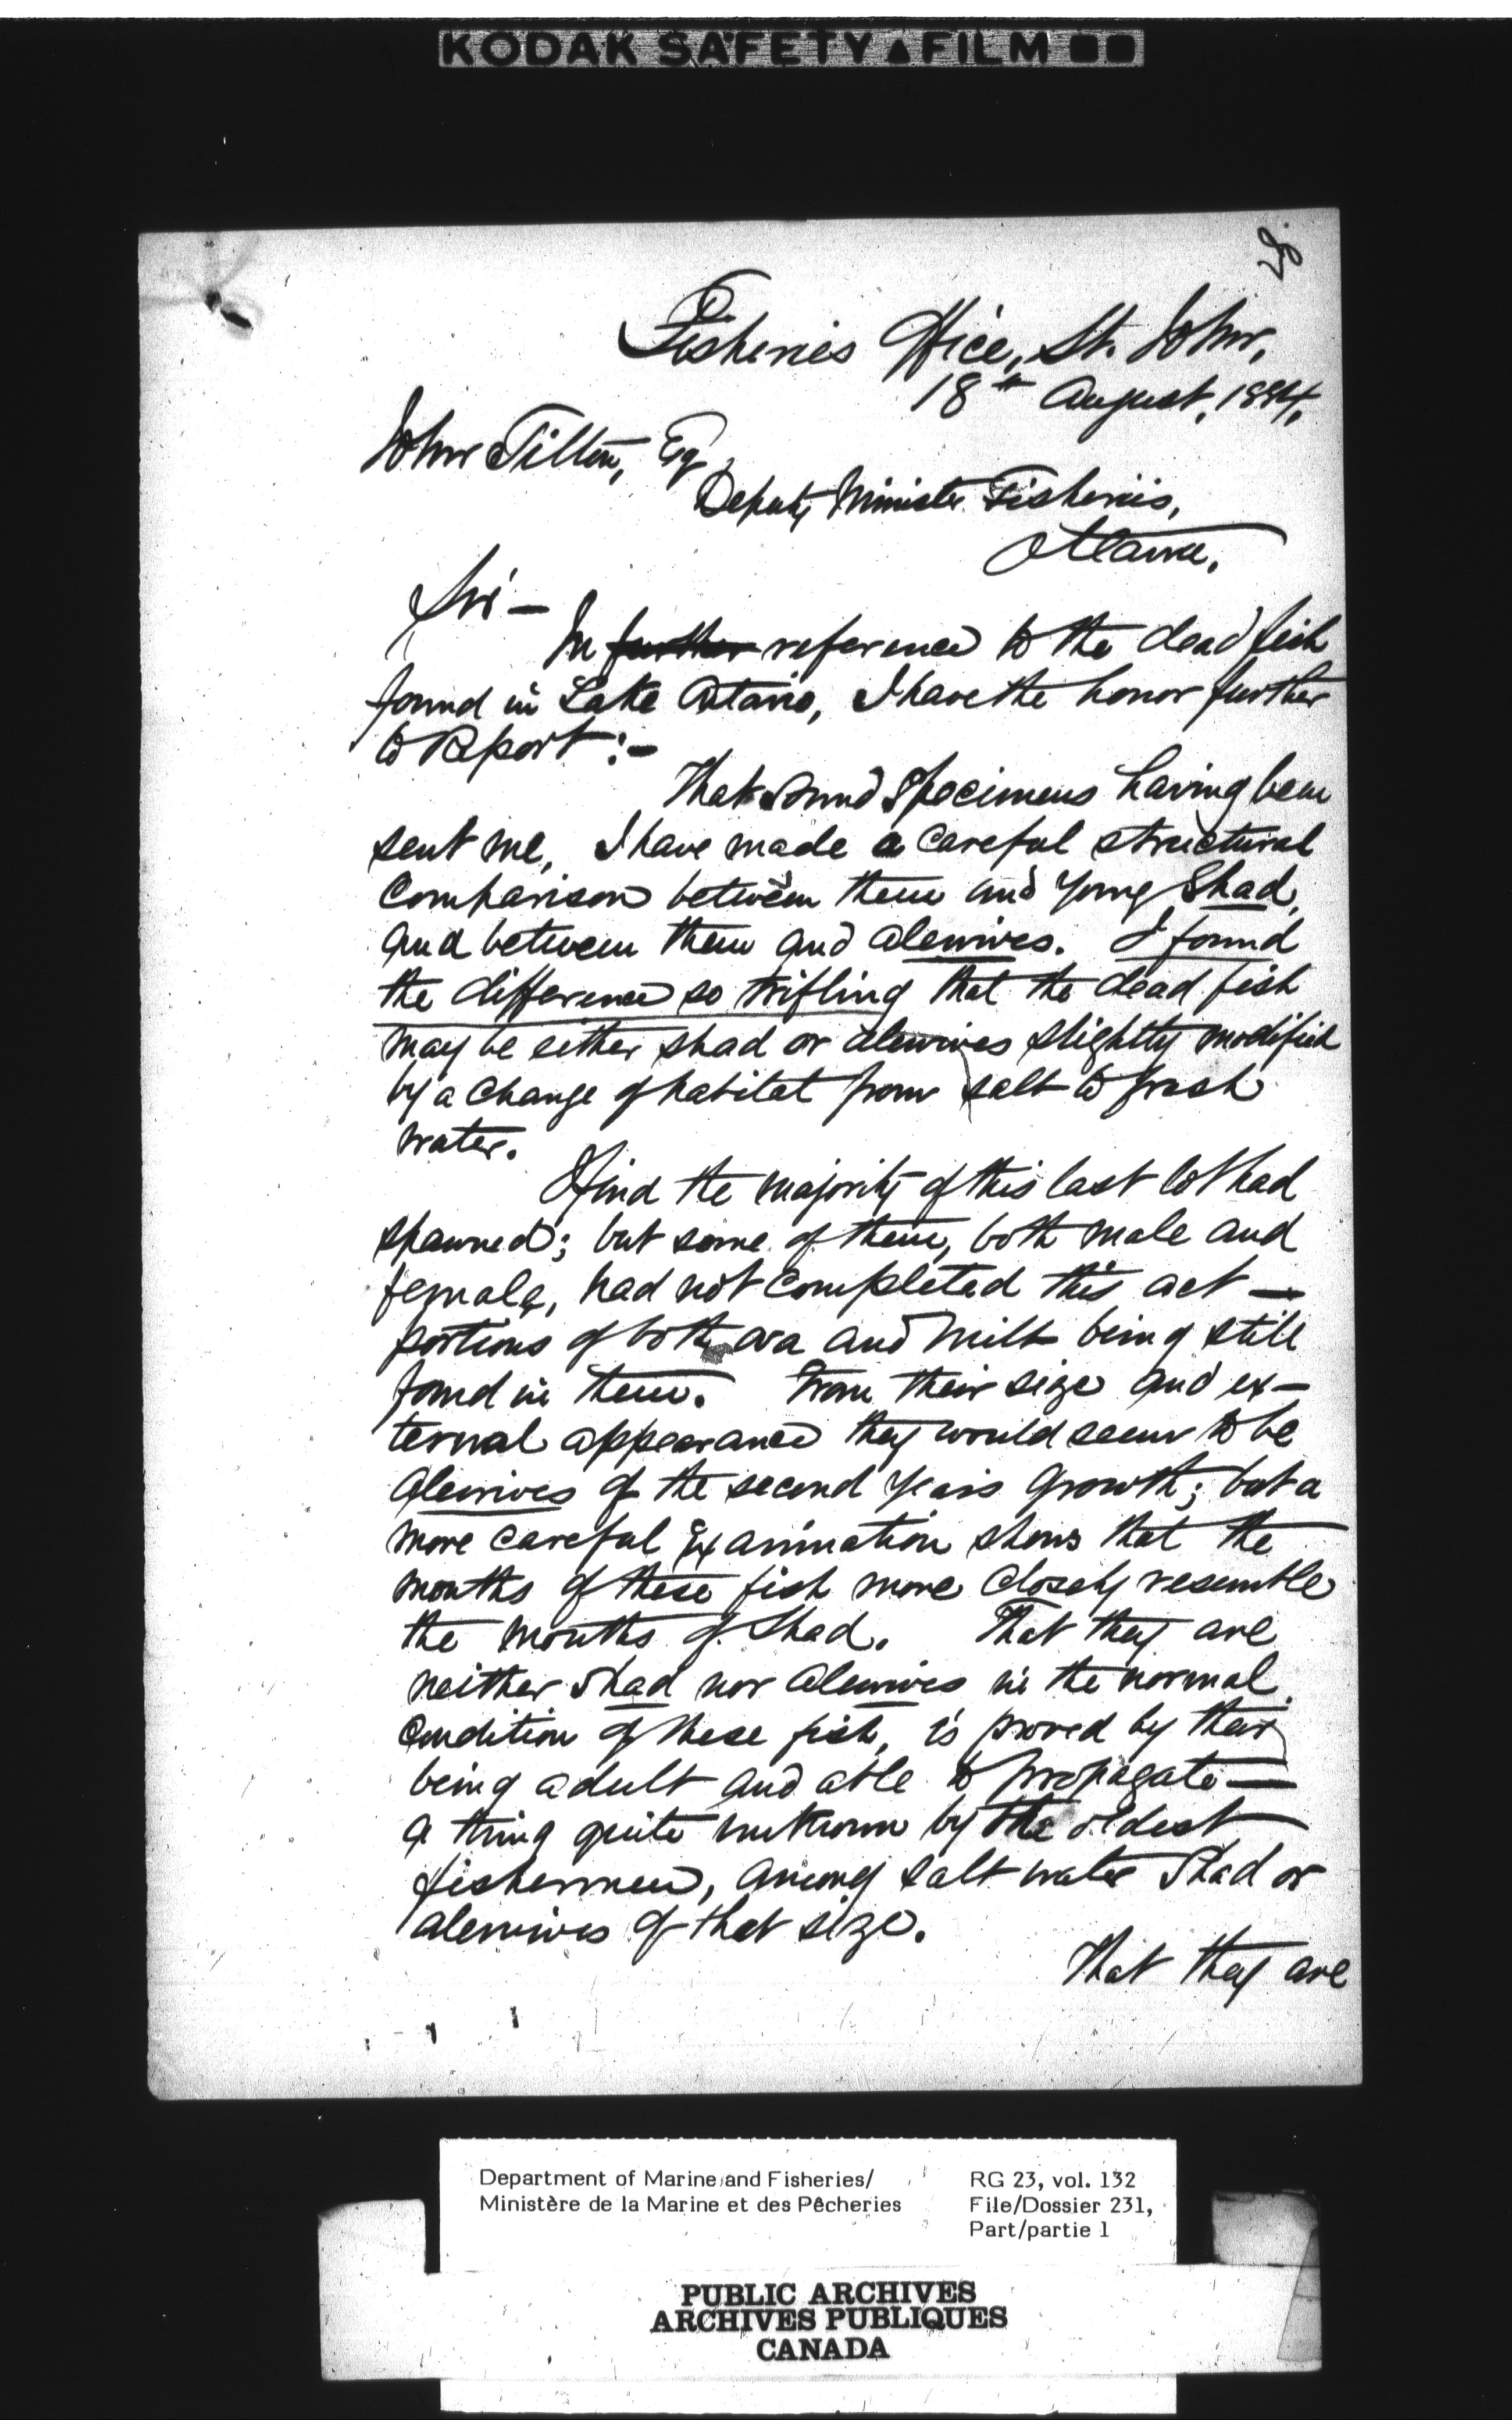 KODAK SAFETY FILM
Fisheries Office, St. John,
18th August, 1894.
John Tilton, Esq,
Deputy Minister Fisheries,
Ottawa.
Sir —
In further reference to the dead fish
found in Lake Ontario, I have the honor further
to Report :—
That sound Specimens having been
sent me, I have made a careful structural
Comparison between them and young Shad,
and between them and alewives. I found
the difference so trifling that the dead fish
may be either shad or alewives slightly modified
by a change of habitat from salt to fresh
water.
I find the majority of this last lot had
spawned; but some of them, both male and
female, had not completed this act —
portions of both ova and milt being still
found in them. From their size and ex-
ternal appearance they would seem to be
alewives of the second years growth; but a
more careful Examination shows that the
mouths of these fish more closely resemble
the mouths of Shad. That they are
neither Shad nor alewives in the normal
Condition of these fish, is proved by their
being adult and able to propagate —
a thing quite unknown by the oldest
fishermen, among salt water Shad or
alewives of that size.
That they are
Department of Marine and Fisheries/
Ministère de la Marine et des Pêcheries
RG 23, vol. 132
File/Dossier 231,
Part/partie 1
PUBLIC ARCHIVES
ARCHIVES PUBLIQUES
CANADA